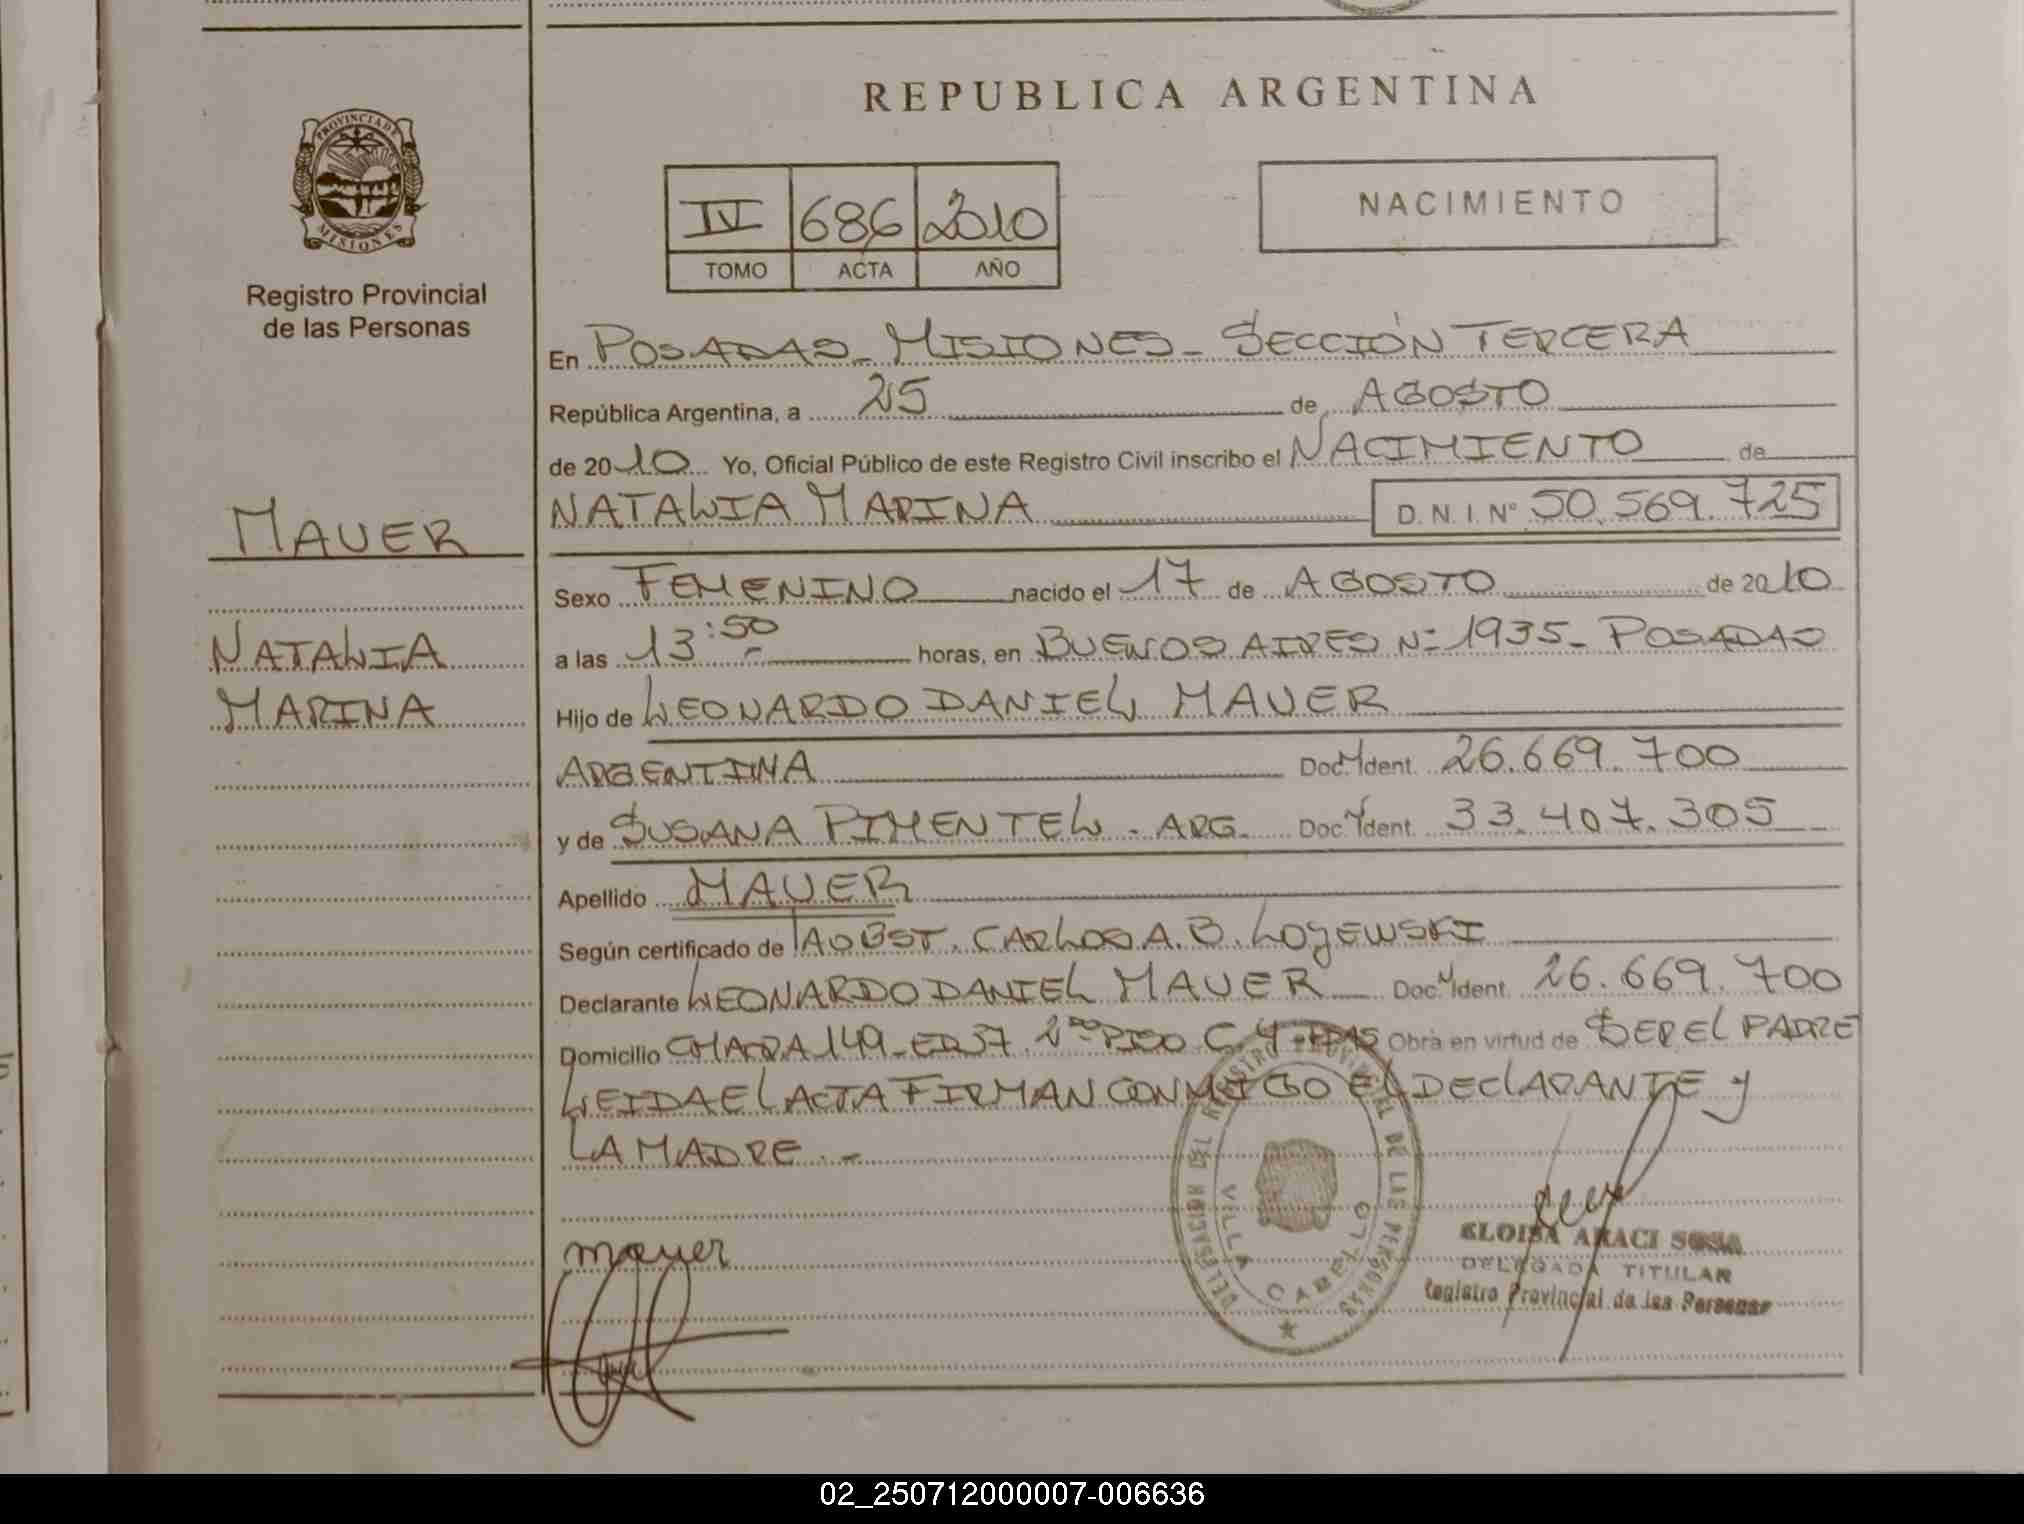 REPUBLICA ARGENTINA
PROVINCIA DE
MISIONES
Registro Provincial
de las Personas
IV 686 2010
TOMO ACTA AÑO
NACIMIENTO
En POSADAS - MISIONES - SECCIÓN TERCERA
República Argentina, a 25 de AGOSTO
de 2010 Yo, Oficial Público de este Registro Civil inscribo el NACIMIENTO de
NATALIA MARINA D.N.I. Nº 50.569.725
MAUER
NATALIA
MARINA
Sexo FEMENINO nacido el 17 de AGOSTO de 2010
a las 13:50 horas, en BUENOS AIRES Nº 1935 - POSADAS
Hijo de LEONARDO DANIEL MAUER
ARGENTINA Doc. Ident. 26.669.700
y de SUSANA PIMENTEL - ARG. Doc. Ident. 33.407.305
Apellido MAUER
Según certificado de OBST. CARLOS A. B. LOJEWSKI
Declarante LEONARDO DANIEL MAUER Doc. Ident. 26.669.700
Domicilio CHACRA 149 - ED 37 2do PISO C. Y Obra en virtud de SER EL PADRE
LEIDA EL ACTA FIRMAN CONMIGO EL DECLARANTE Y
LA MADRE. -
mauer
DELEGACION DEL REGISTRO PROVINCIAL DE LAS PERSONAS
VILLA CABELLO
ELOISA ARACI SOSA
DELEGADA TITULAR
Registro Provincial de las Personas
02_250712000007-006636